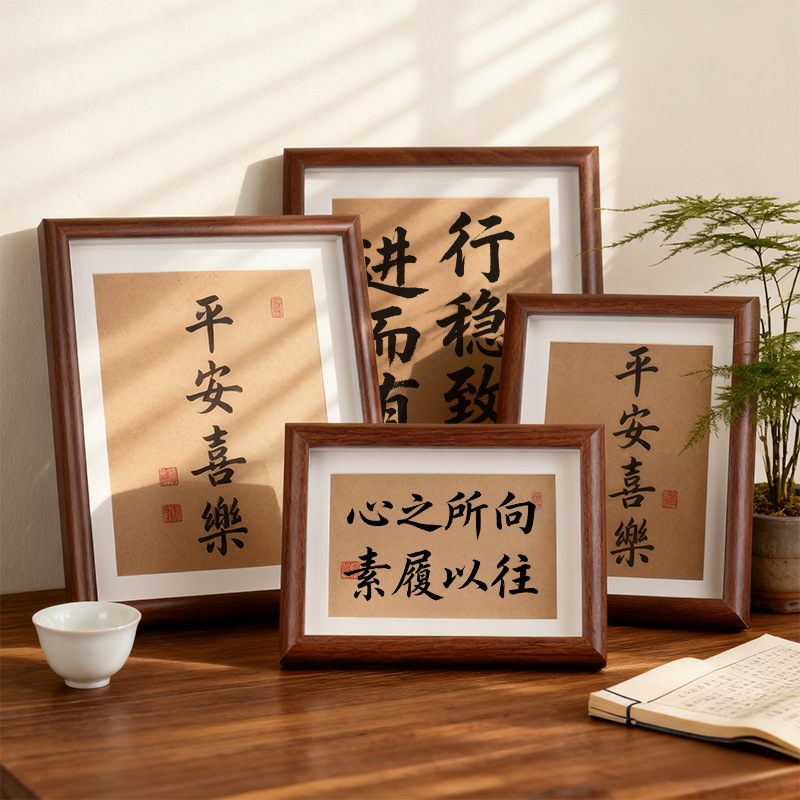 平安喜樂
行稳致
进而有
心之所向
素履以往
平安喜樂